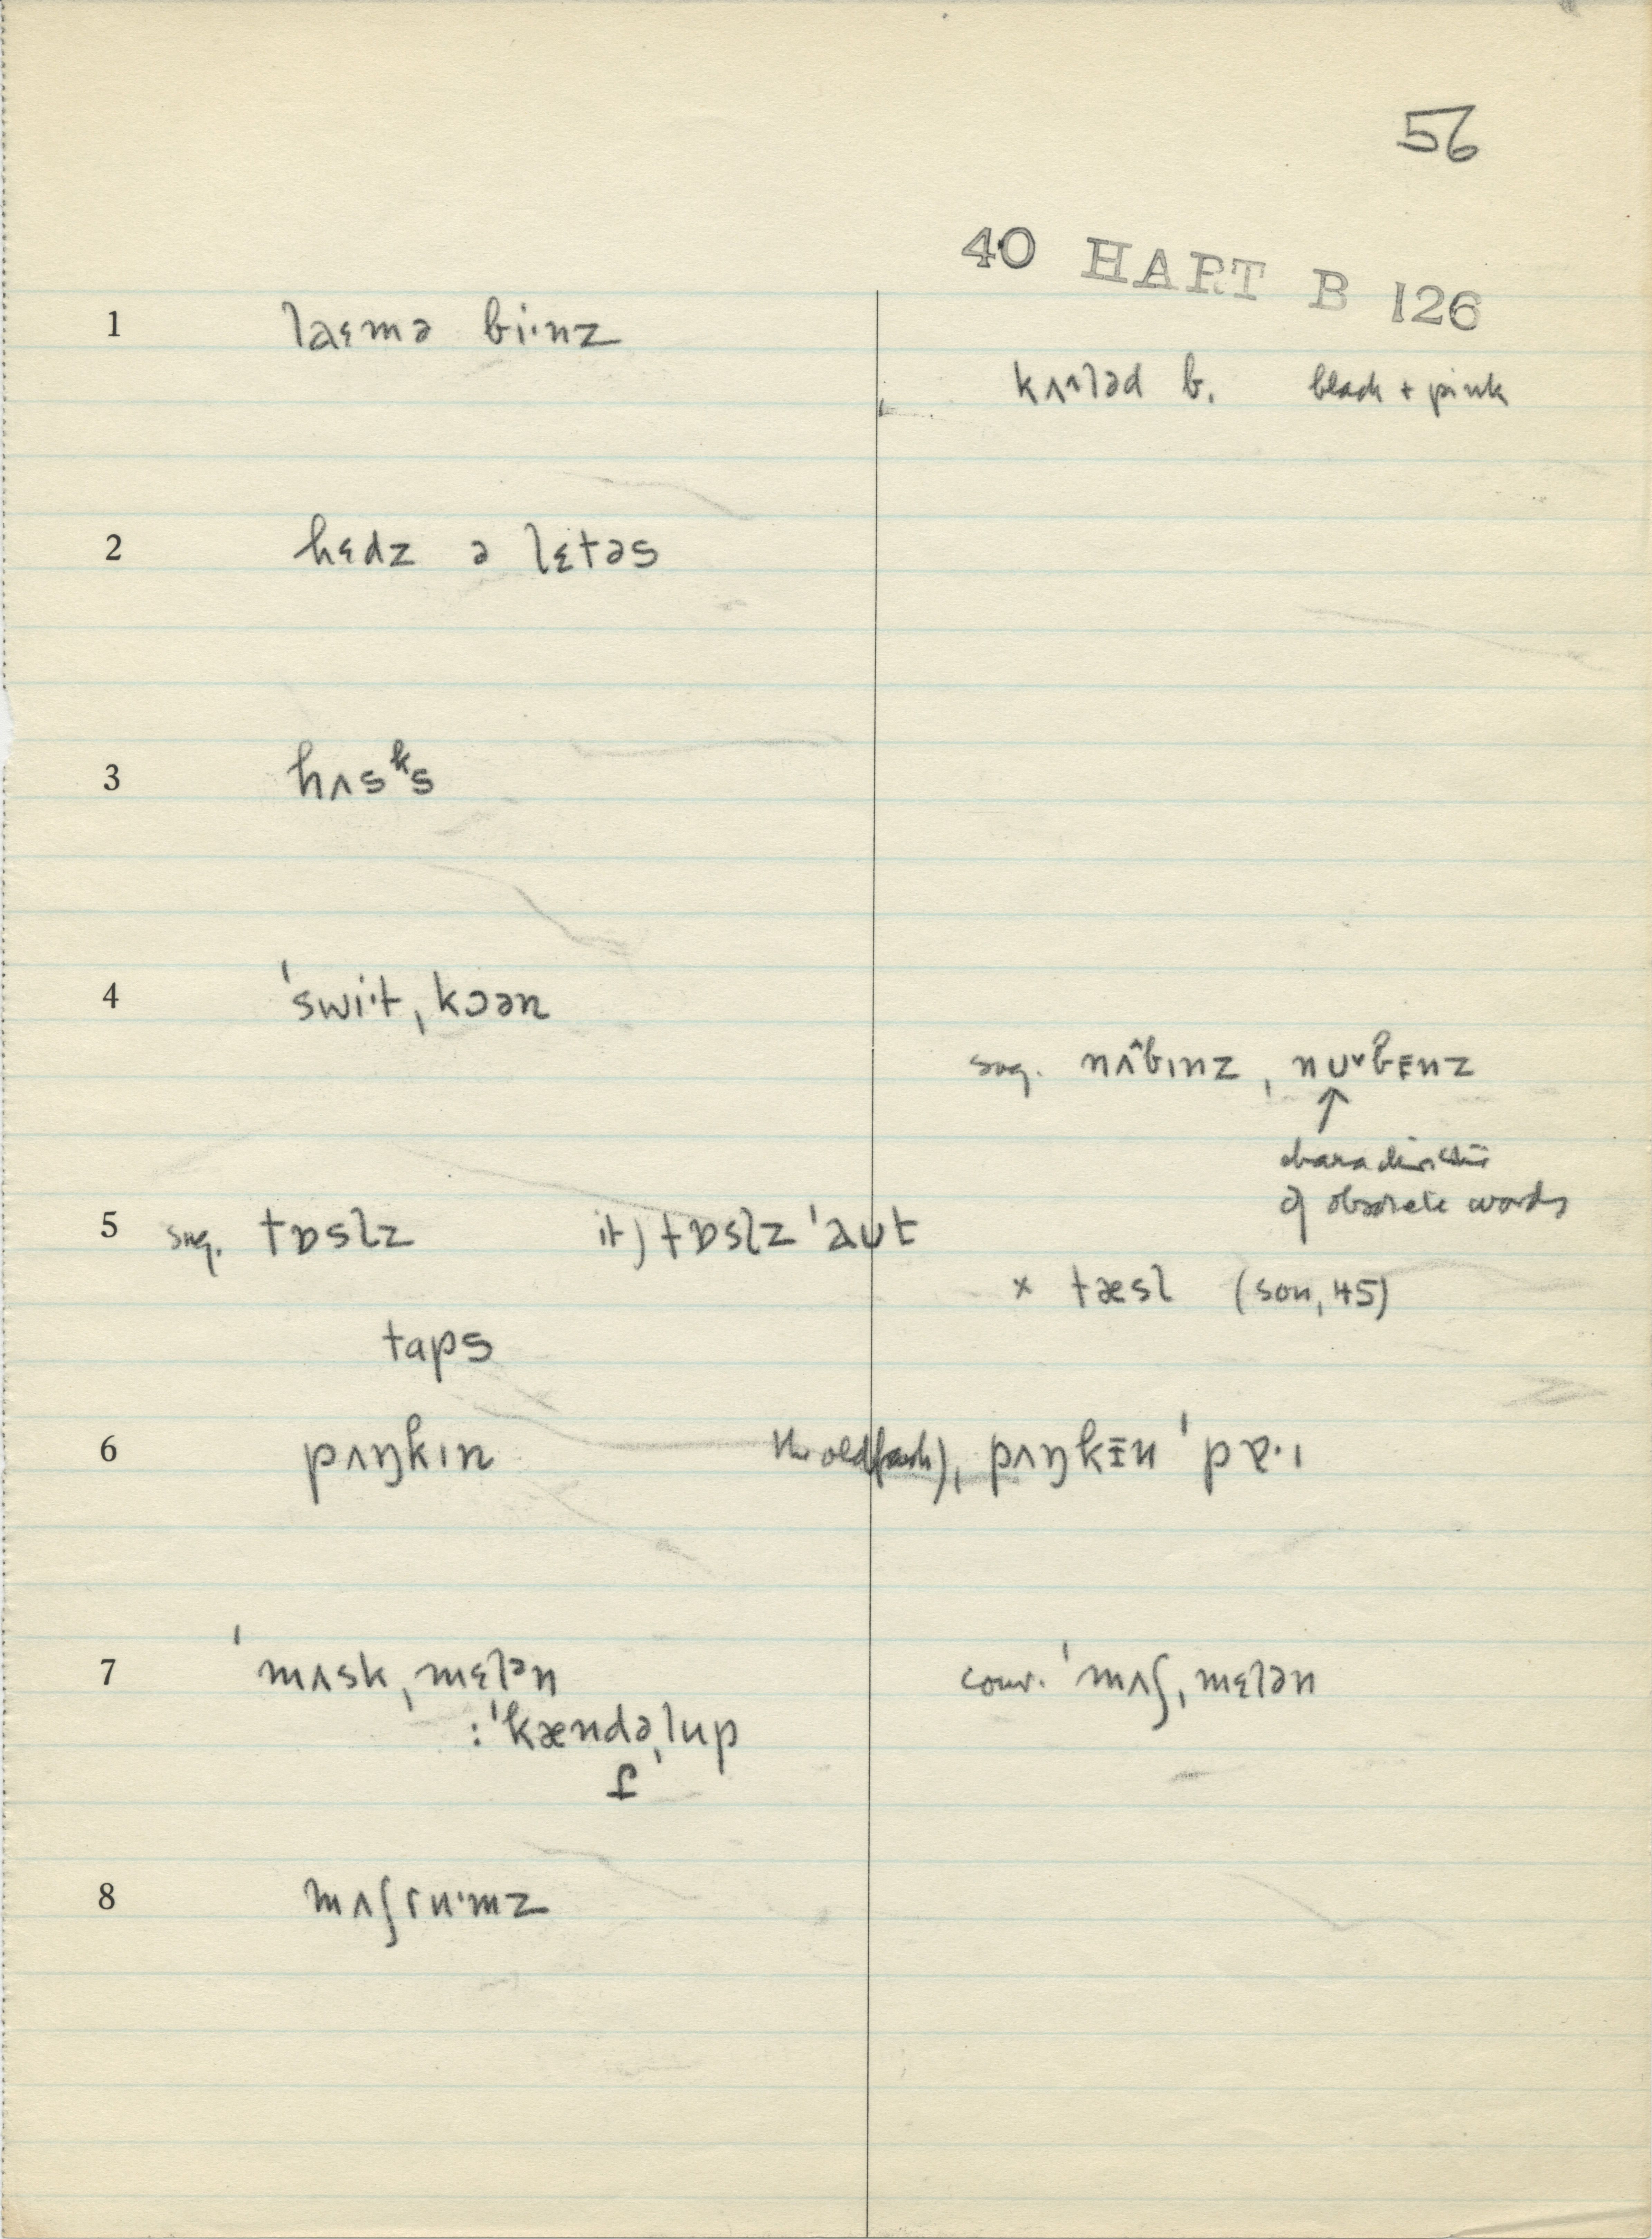 56
40 HART B 126
1 laɛmə bi·nz
kʌləd b. black + pink
2 hɛdz ə lɛtəs
3 hʌsᵏs
4 ˈswi·t ˌkɔən
sug. nʌ^bɪnz , nʊ˅bɪnz
↑
characteristic
of obsolete words
5 sug. tɒslz it) tɒslz ˈaʊt
x tæsl (son, 45)
taps
6 pʌŋkɪn the old fash), pʌŋkɪn ˈpɐ·ɪ
7 ˈmʌskˌmɛlən conv. ˈmʌʃˌmɛlən
: ˈkændəˌlup
8 mʌʃru·mz